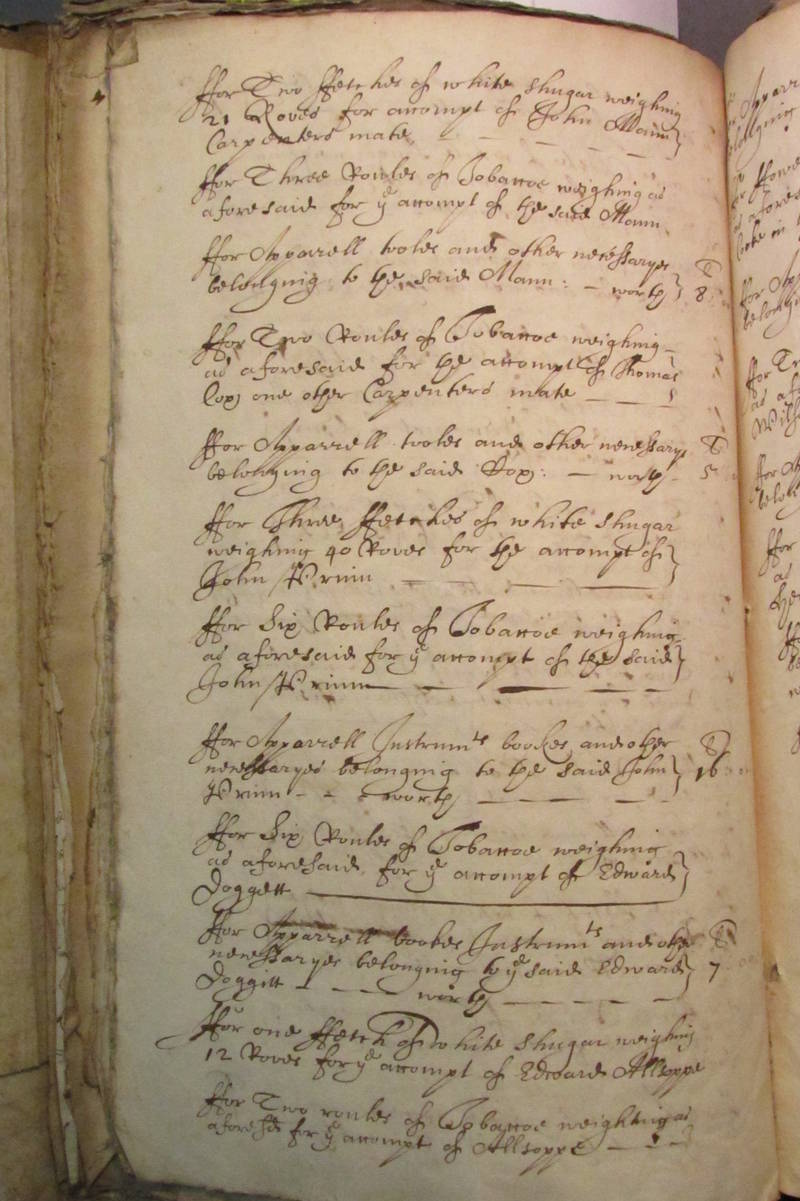 ffor Two ffetches of white Shugar weighing
21 Roves for accompt of John Mann
Carpenters mate
ffor Three Roules of Tobaccoe weighing as
aforesaid for ye accompt of the said Mann
ffor Apparell tooles and other necessaryes
belonging to the said Mann: worth 8
ffor Two Roules of Tobaccoe weighing
as aforesaid for the accompt of Thomas
one other Carpenters mate
ffor Apparrell tooles and other necessarys
belonging to the said worth 5
ffor Three ffetches of white Shugar
weighing 40 Roves for the accompt of
John Prinn
ffor Six Roules of Tobaccoe weighing
as aforesaid for ye accompt of the said
John Prinn
ffor Apparell Instrumts bookes and other
necessaryes belonging to the said John 16
Prinn worth
ffor Six Roules of Tobaccoe weighing
as aforesaid for ye accompt of Edward
Doggett
ffor Apparrell bookes Instrumts and other
necessaryes belonging to ye said Edward 7
Doggitt worth
ffor one ffetch of white Shugar weighing
12 Roves for ye accompt of Edward Allsoppe
ffor Two roules of Tobaccoe weighing as
aforesd for ye accompt of Allsoppe